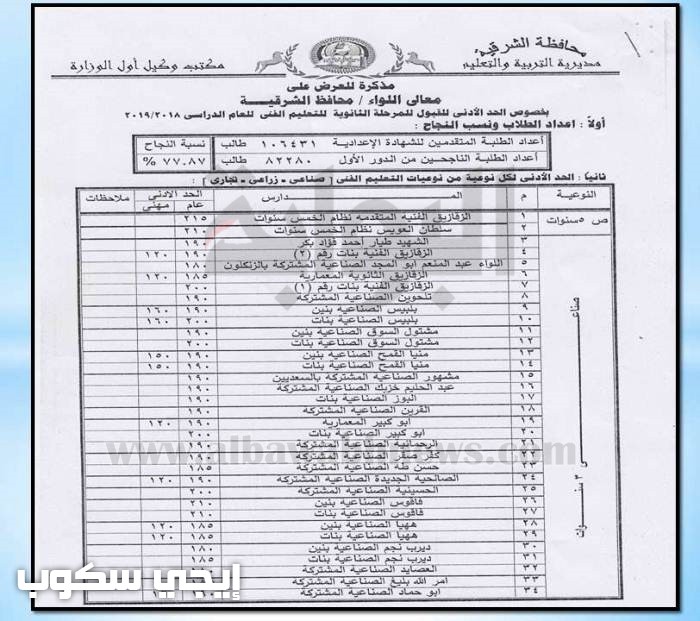 محافظة الشرقية
مديرية التربية والتعليم
مكتب وكيل أول الوزارة
مذكرة للعرض على
معالى اللواء / محافظ الشرقيـــة
بخصوص الحد الأدنى للقبول للمرحلة الثانوية للتعليم الفنى للعام الدراسى ٢٠١٩/٢٠١٨
أولاً : اعداد الطلاب ونسب النجاح :
أعداد الطلبة المتقدمين للشهادة الإعدادية ١٠٦٤٣١ طالب نسبة النجاح
أعداد الطلبة الناجحين من الدور الأول ٨٢٢٨٠ طالب ٧٧.٨٧ %
ثانيا : الحد الأدنى لكل نوعية من نوعيات التعليم الفنى [ صناعى - زراعى - تجارى ] :
النوعية م المـــدارس الحد الأدنى ملاحظات
عام مهنى
ص ٥ سنوات ١ الزقازيق الفنية المتقدمة نظام الخمس سنوات ٢١٥
٢ سلطان العويس نظام الخمس سنوات ٢١٠
٣ الشهيد طيار أحمد فؤاد بكر ١٩٠
٤ الزقازيق الفنية بنات رقم (٢) ١٩٠ ١٢٠
٥ اللواء عبد المنعم أبو المجد الصناعية المشتركة بالزنكلون ١٨٠
٦ الزقازيق الثانوية المعمارية ١٨٥ ١٢٠
٧ الزقازيق الفنية بنات رقم (١) ٢٠٠
٨ تلحوين الصناعية المشتركة ١٩٠
٩ بلبيس الصناعية بنين ١٩٠ ١٦٠
١٠ بلبيس الصناعية بنات ٢٠٠ ١٦٠
١١ مشتول السوق الصناعية بنين ١٩٠
١٢ مشتول السوق الصناعية بنات ١٩٠
١٣ منيا القمح الصناعية بنين ١٩٠ ١٥٠
١٤ منيا القمح الصناعية بنات ١٩٠ ١٥٠
١٥ مشهور الصناعية المشتركة بالسعديين ١٩٠
١٦ عبد الحليم خزبك الصناعية المشتركة ١٩٠
١٧ البوز الصناعية بنات ١٩٠
١٨ القرين الصناعية المشتركة ١٩٠
١٩ أبو كبير المعمارية ١٩٠ ١٢٠
٢٠ أبو كبير الصناعية بنات ٢٠٠
٢١ الرحمانية الصناعية المشتركة ١٩٠
كفر صقر الصناعية المشتركة ١٩٠
٢٣ حسن طه الصناعية المشتركة ١٨٥
٢٤ الصالحية الجديدة الصناعية المشتركة ١٩٠ ١٢٠
٢٥ الحسينية الصناعية المشتركة ٢٠٠
٢٦ فاقوس الصناعية بنين ٢١٠
٢٧ فاقوس الصناعية بنات ٢١٠
٢٨ ههيا الصناعية بنين ١٨٥ ١٢٠
٢٩ ههيا الصناعية بنات ١٨٥ ١٢٠
٣٠ ديرب نجم الصناعية بنين ١٨٠
٣١ ديرب نجم الصناعية بنات ١٨٥
٣٢ العصايد الصناعية المشتركة
٣٣ أمر الله بليغ الصناعية المشتركة
٣٤ أبو حماد الصناعية المشتركة
صناعى ٣ سنوات
إيدي سكوب